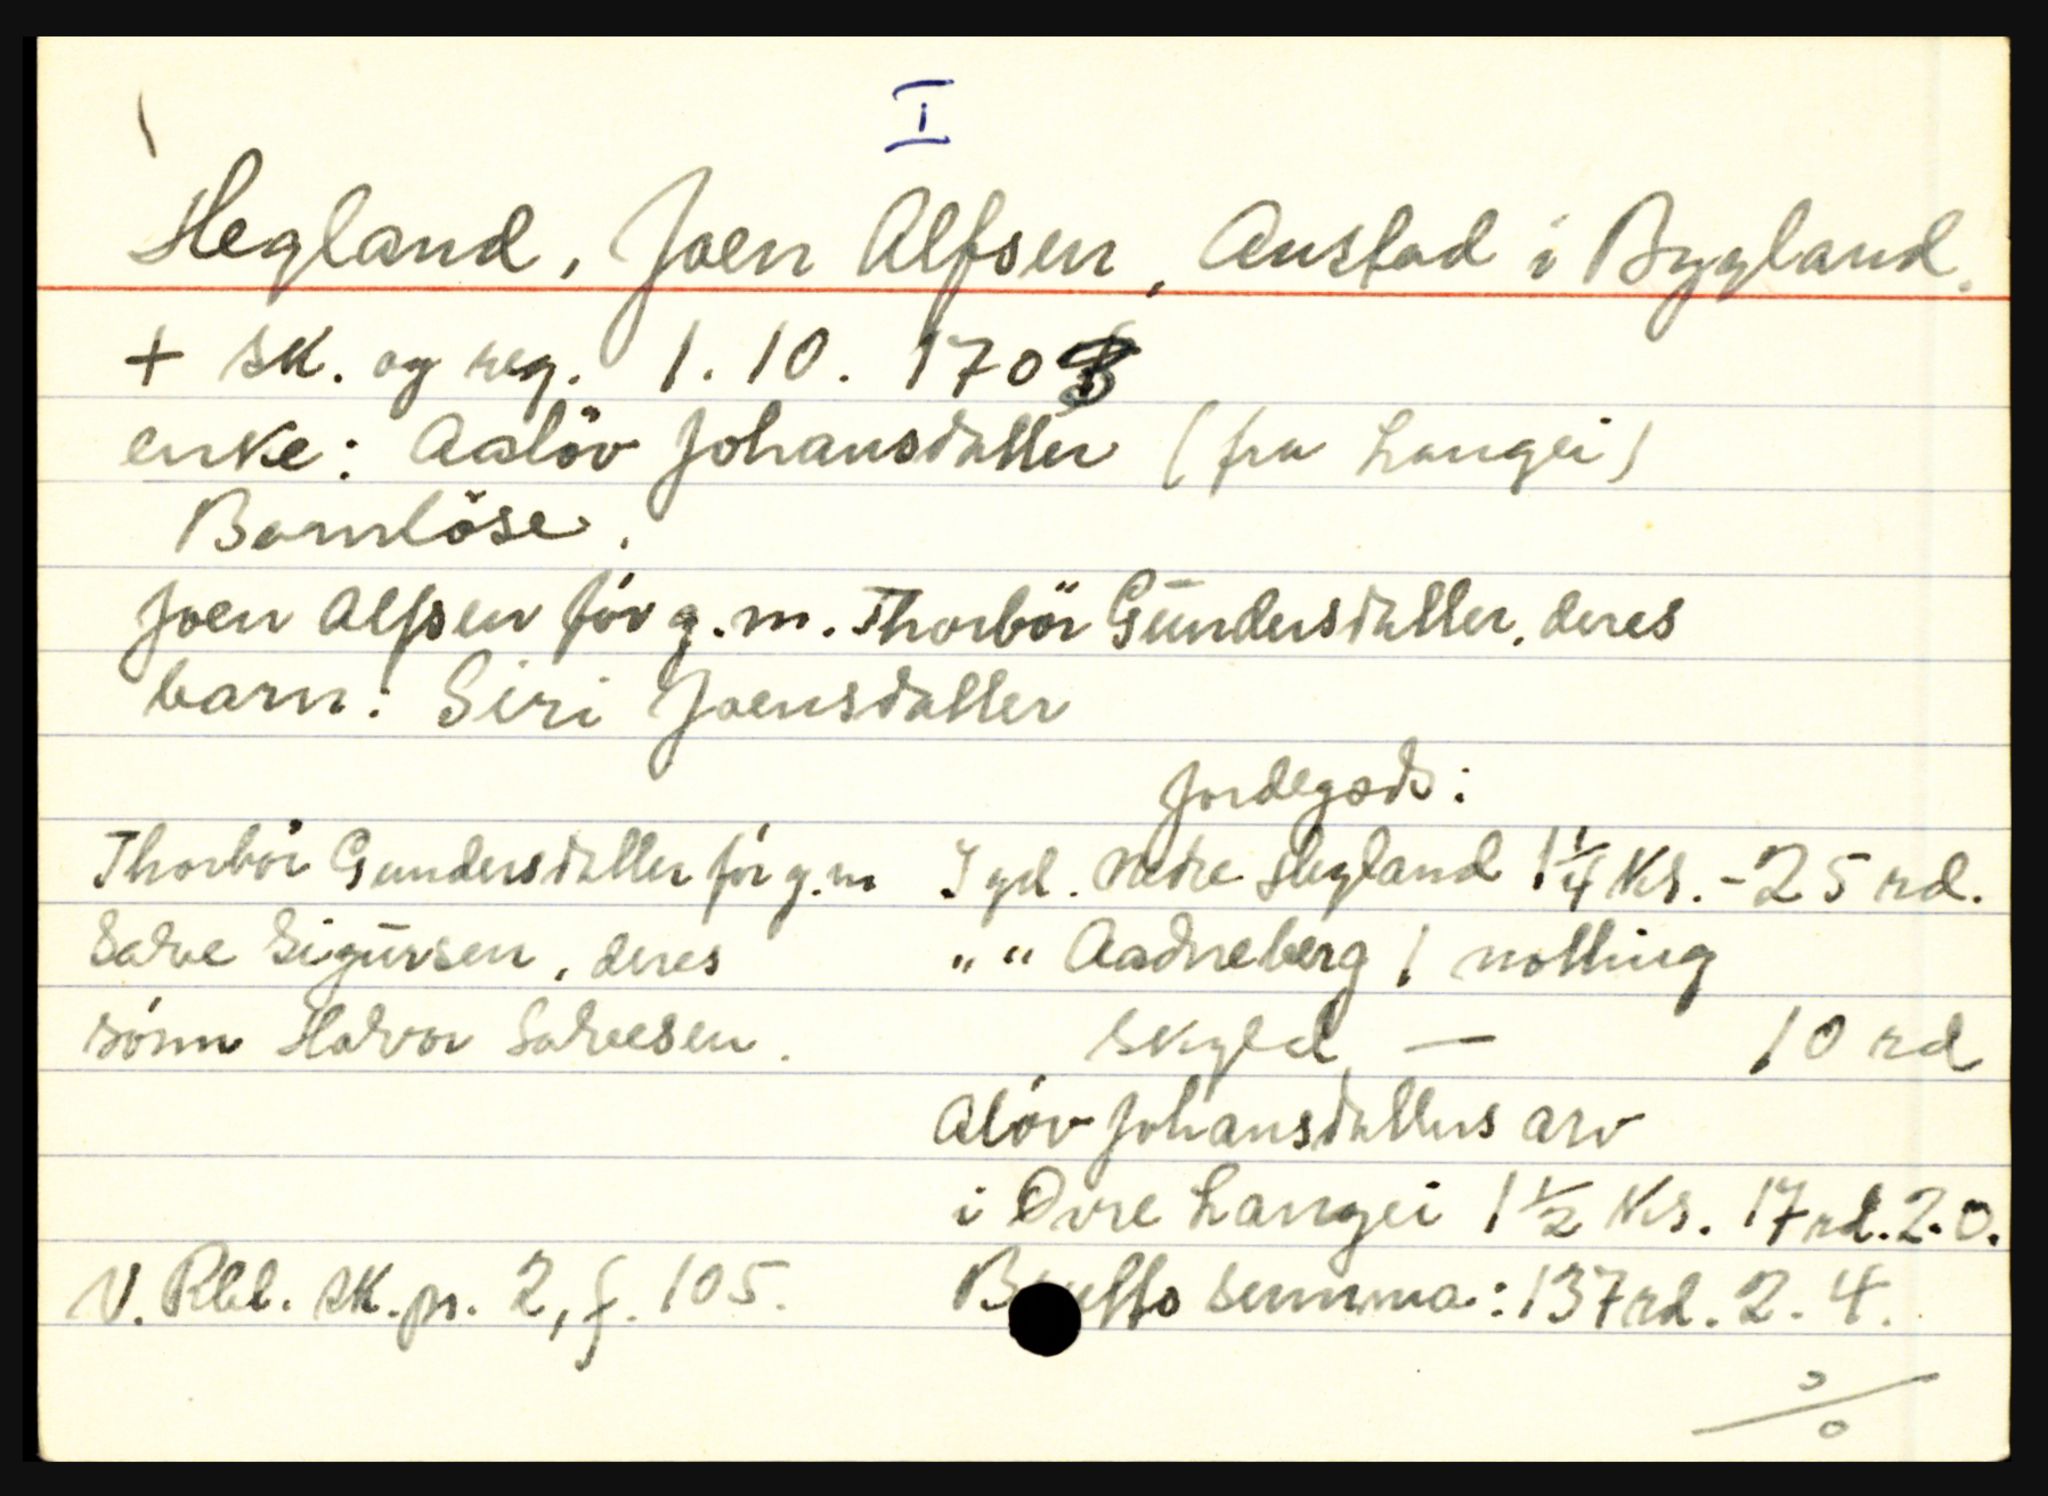 I
Hegland, Joen Alfsen, Austad i Bygland.
+ sk. og reg. 1. 10. 1703
enke: Aaslöv Johansdatter (fra Langei)
Barnlöse.
Joen Alfsen för g. m. Thorbör Gūndersdatter, deres
barn: Siri Joensdatter
Jordegods:
Thorbör Gundersdatter för g. m
Salve Sigūrsen, deres
sönn Halvor Salvesen.
I gd. nedre Hegland 1 1/4 Ks. - 25 rd.
" " Aadneberg 1 notting
skyld — 10 rd
Alöv Johansdatters arv
i Övre Langei 1 1/2 Ks. 17 rd. 2. 0.
Brutto summa: 137 rd. 2. 4.
V. Rbl. sk. pr. 2, f. 105.